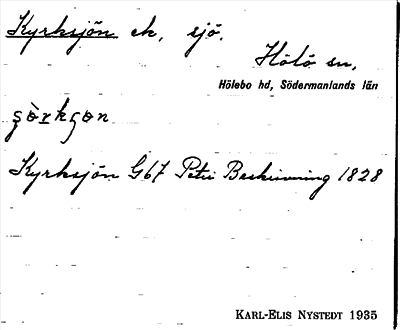 Kyrksjön ek, sjö.
Hölö sn,
Hölebo hd, Södermanlands län
Kyrksjön G67 Petri Beskrivning 1828
KARL-ELIS NYSTEDT 1935